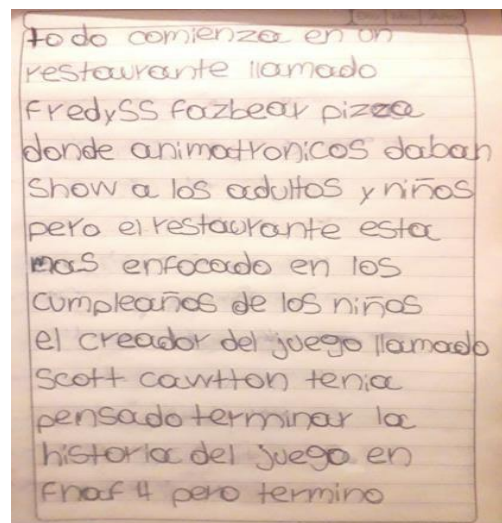 todo comienza en un
restaurante llamado
FredySS Fazbear pizza
donde animatronicos daban
Show a los adultos y niños
pero el restaurante esta
mas enfocado en los
cumpleaños de los niños
el creador del juego llamado
Scott cawtton tenia
pensado terminar la
historia del juego en
Fnaf 4 pero termino